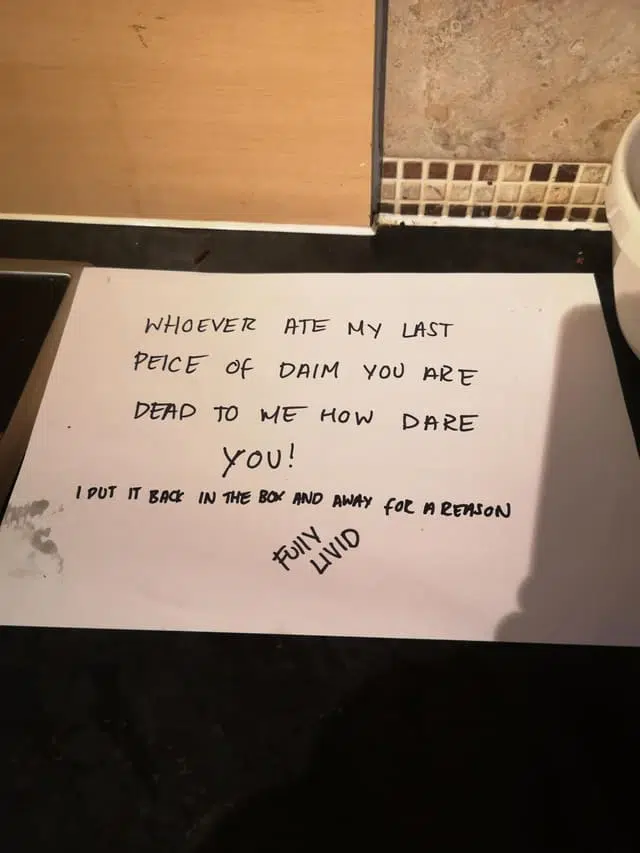 WHOEVER ATE MY LAST
PEICE OF DAIM YOU ARE
DEAD TO ME HOW DARE
YOU!
I PUT IT BACK IN THE BOX AND AWAY FOR A REASON
FUllY
LIVID